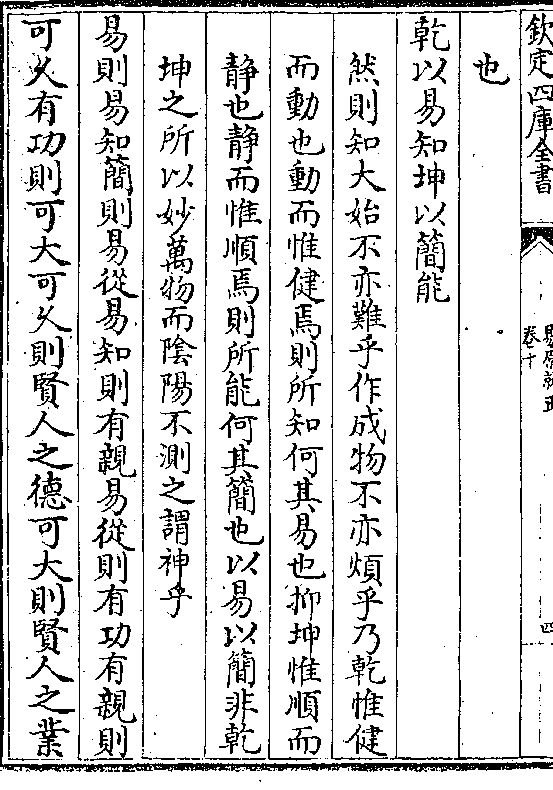 欽定四庫全書
卷十
四
也
乾以易知坤以簡能
然則知大始不亦難乎作成物不亦煩乎乃乾惟健
而動也動而惟健焉則所知何其易也抑坤惟順而
静也静而惟順焉則所能何其簡也以易以簡非乾
坤之所以妙萬物而陰陽不測之謂神乎
易則易知簡則易從易知則有親易從則有功有親則
可久有功則可大可久則賢人之德可大則賢人之業